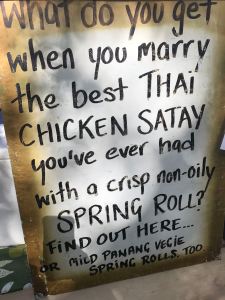 What do you get
when you marry
the best THAI
CHICKEN SATAY
you've ever had
with a crisp non-oily
SPRING ROLL?
FIND OUT HERE...
OR MILD PANANG VEGIE
SPRING ROLLS, TOO